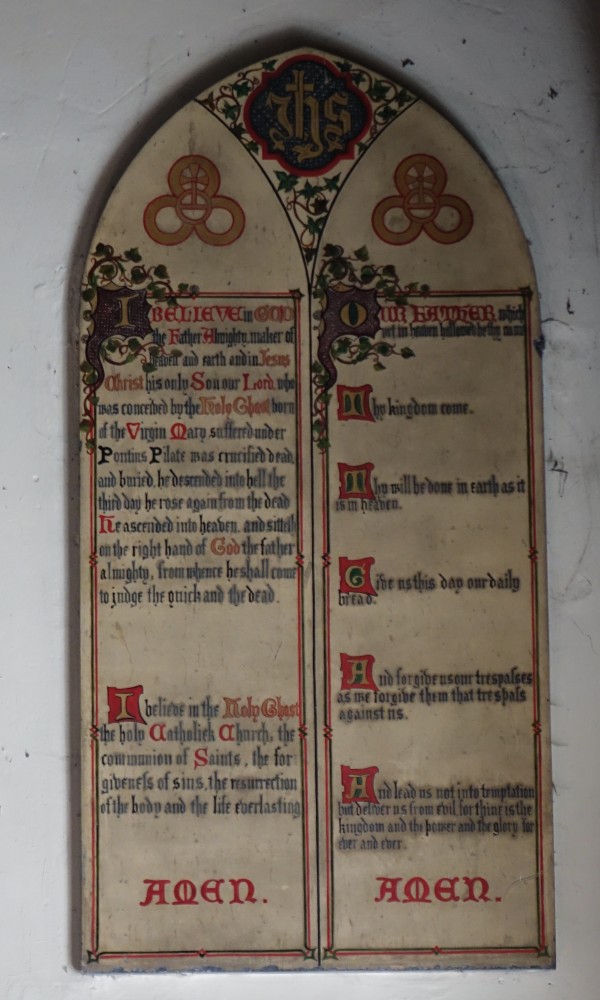 ihs
I BELIEVE in GOD
the Father Almighty, maker of
heaven and earth and in Jesus
Christ his only Son our Lord, who
was conceived by the Holy Ghost born
of the Virgin Mary, suffered under
Pontius Pilate was crucified dead,
and buried, he descended into hell the
third day he rose again from the dead
He ascended into heaven, and sitteth
on the right hand of God the father
almighty, from whence he shall come
to judge the quick and the dead.
I believe in the Holy Ghost
the holy Catholick Church, the
communion of Saints, the for
giveness of sins, the resurrection
of the body and the life everlasting
AMEN.
OUR FATHER, which
art in heaven hallowed be thy name
Thy kingdom come.
Thy will be done in earth as it
is in heaven.
Give us this day our daily
bread.
And forgive us our trespasses
as we forgive them that trespass
against us.
And lead us not into temptation
but deliver us from evil, for thine is the
kingdom and the power and the glory, for
ever and ever.
AMEN.